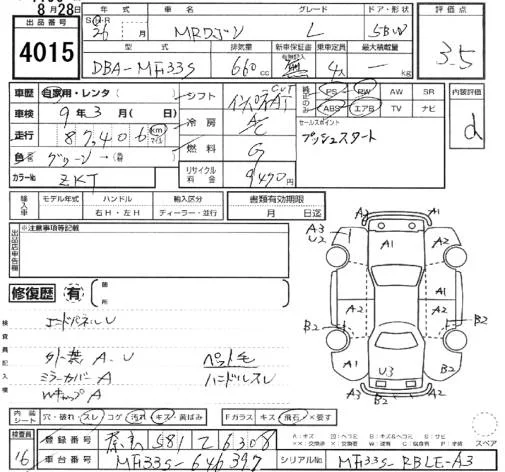 8月28日
年式 車名 グレード ドア・形状 評価点
出品番号
4015
26 月 MRワゴン L 5BW
3.5
型式 排気量 新車保証書 乗車定員 最大積載量
DBA-MF33S 660cc 無 4人 kg
車歴 自家用・レンタ シフト インパネAT CVT
純正のみ PS PW AW SR 内装評価
ABS エアB TV ナビ
d
車検 9年3月 冷房 AC
セールスポイント
プッシュスタート
走行 87,406 km
燃料 G
色 グリーン
カラーNo ZKT
リサイクル料金 9490円
輸入車 モデル年式 ハンドル 輸入区分 書類有効期限
右H・左H ディーラー・並行 月 日迄
出品店申告欄
※注意事項等記載
修復歴 有 箇所
検査員記入欄
エンドパネルU
外装 A.U
ミラーカバーA
WキャップA
ペット毛
ハンドルスレ
A2 A2
A3
U2
1
A1
A2
A1
A2
A1
A1
B2
B2
U3
A2 A2
内装シート 穴・破れ・スレ コゲ 汚れ キズ 黄ばみ Fガラス キズ 飛石 ×要す
検査員
16
登録番号 581 て 6308
スペア
車台番号 MF33S-646397 シリアルNo MF33S-RBLE-A3